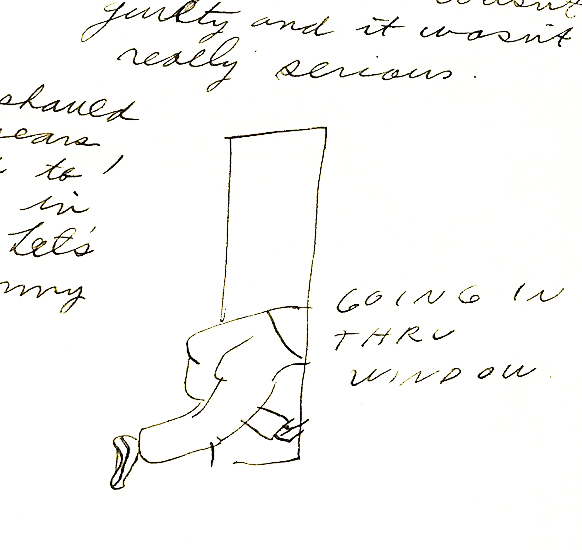 wasn't
guilty and it wasn't
really serious.
shaved
ears
to !
in
Let's
GOING IN
THRU
WINDOW.